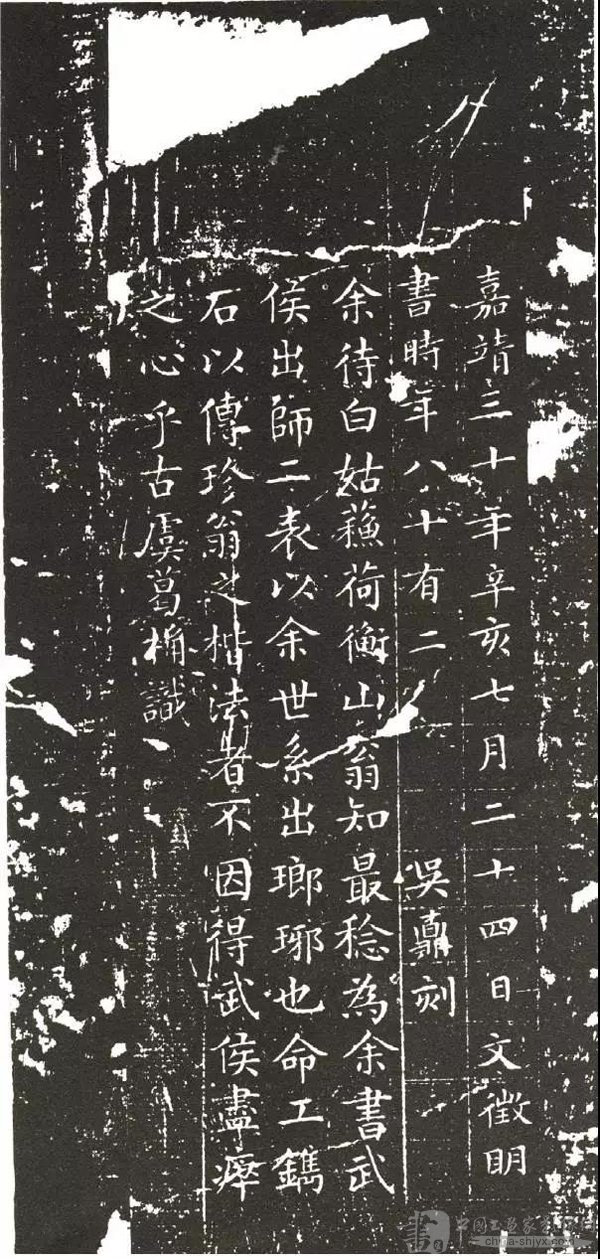 嘉靖三十年辛亥七月二十四日文徵明
書時年八十有二
吳鼒刻
余待白姑蘓荷衡山翁知最稔為余書武
侯出師二表以余世系出瑯琊也命工鐫
石以傳珍翁之楷法者不因得武侯盡瘁
之心乎古虞葛桷識
中国工艺家书画院
china-shjyx.com